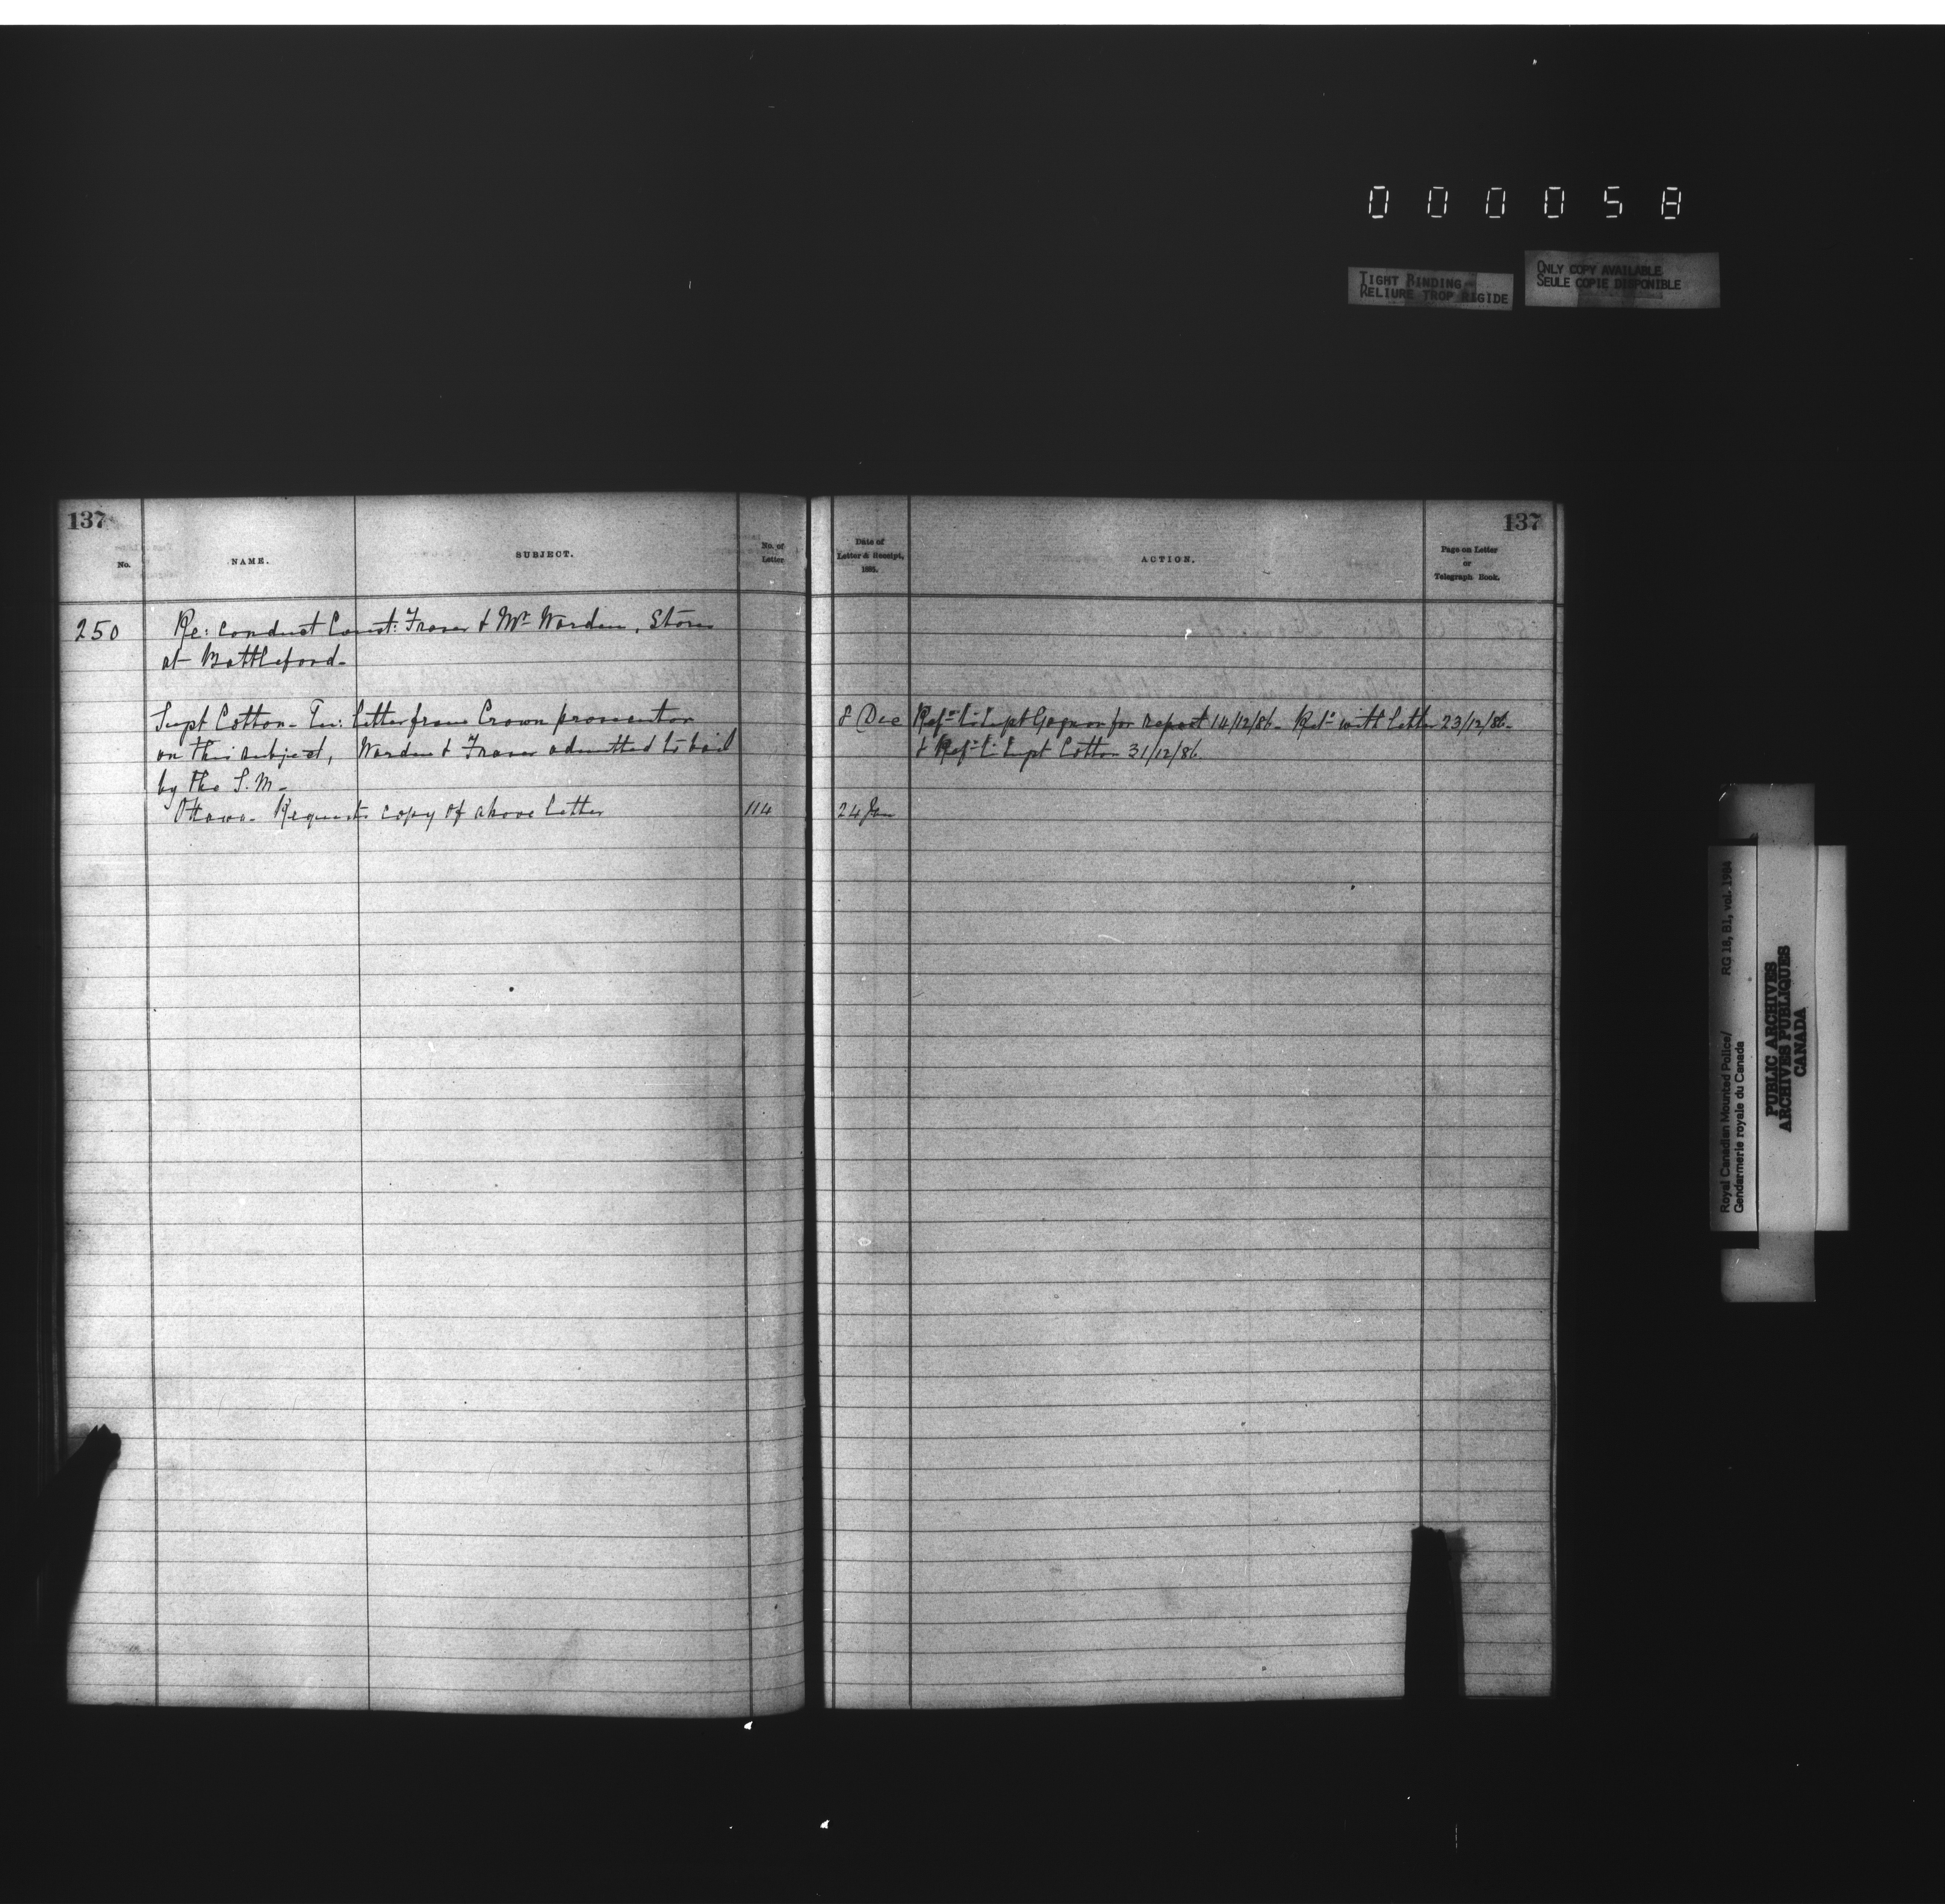 000058
TIGHT BINDING
RELIURE TROP RIGIDE
ONLY COPY AVAILABLE
SEULE COPIE DISPONIBLE
137
No.
NAME.
SUBJECT.
No. of
Letter
250
Re: conduct Const: Fraser & Mr Warden, Stores
at Battleford-
Supt Cotton- Tn: letter from Crown prosecutor
on this subject, Warden & Fraser admitted to bail
by the S.M-
Ottawa- Requests copy of above letter
114
137
Date of
Letter & Receipt,
1885.
ACTION.
Page on Letter
or
Telegraph Book.
8 Dec
Refd to Supt Gagnon for report 14/12/86- Retd with letter 23/12/86-
& Refd to Supt Cotton 31/12/86
24 Jan
Royal Canadian Mounted Police/ RG 18, B1, vol. 1984
Gendarmerie royale du Canada
PUBLIC ARCHIVES
ARCHIVES PUBLIQUES
CANADA